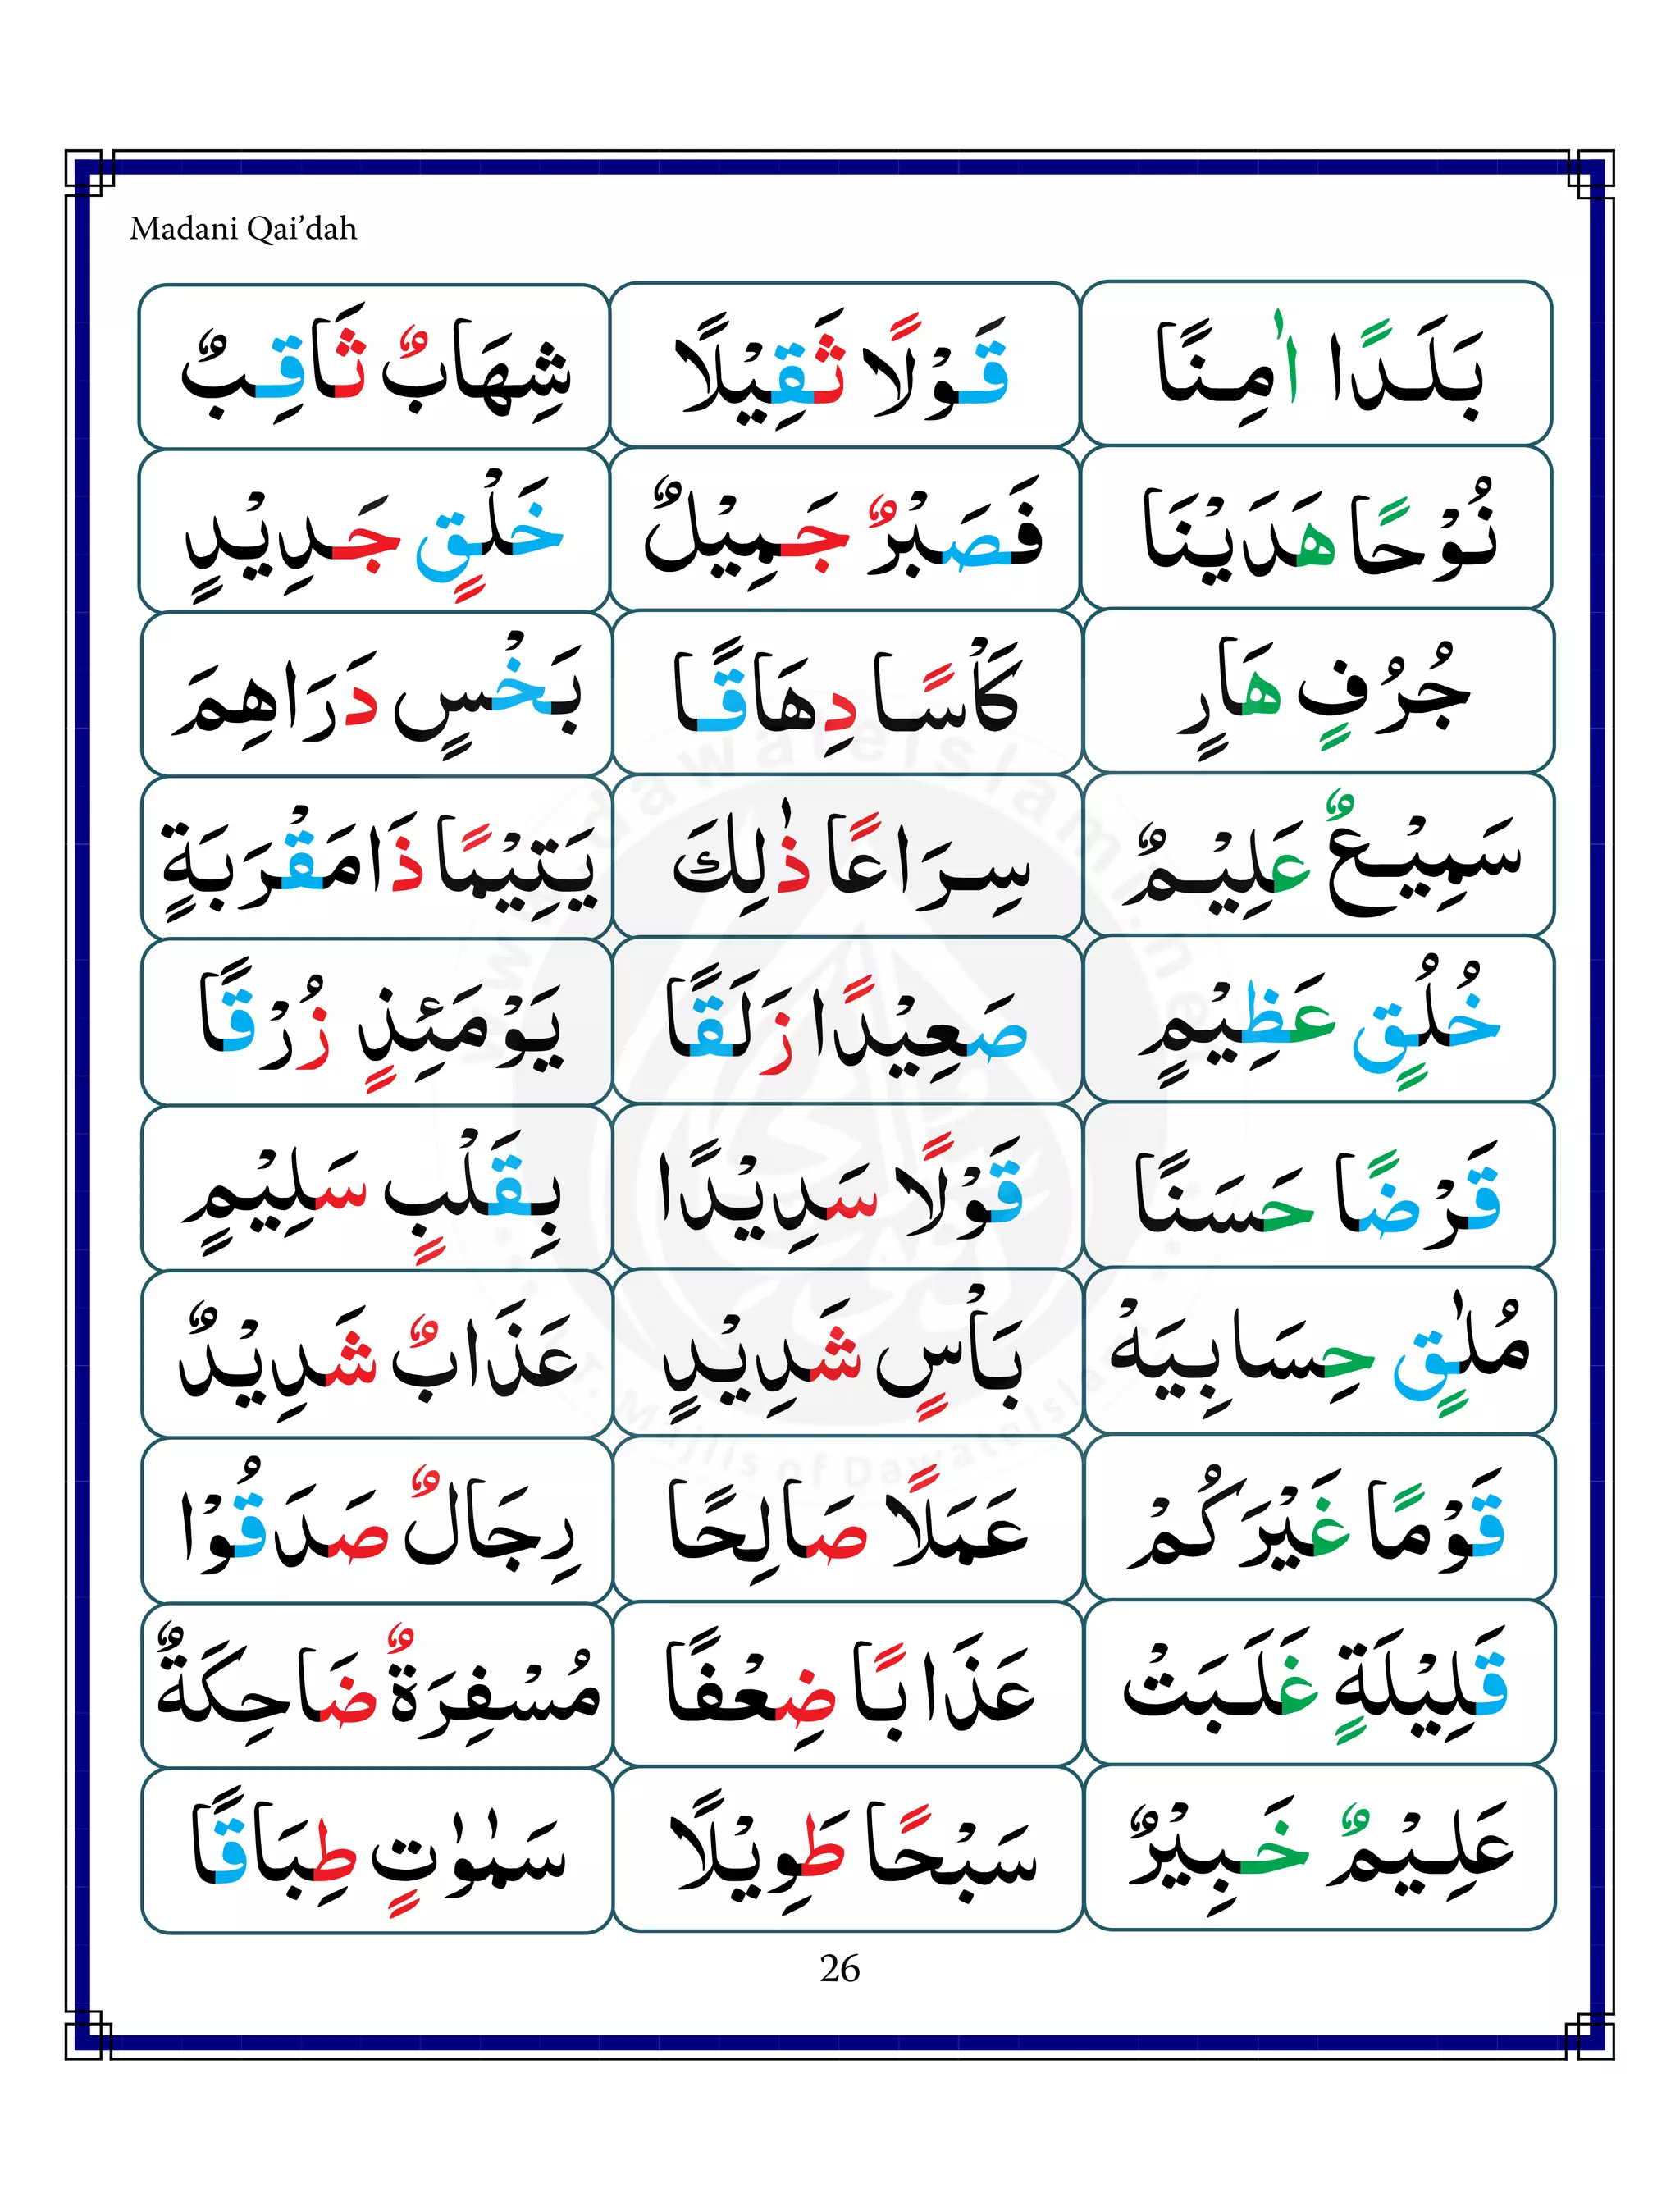 Madani Qai’dah
بَلَدًا اٰمِنًا قَوْلًا ثَقِيْلًا شِهَابٌ ثَاقِبٌ
نُوْحًا هَدَيْنَا فَصَبْرٌ جَمِيْلٌ خَلْقٍ جَدِيْدٍ
جُرُفٍ هَارٍ كَاْسًا دِهَاقًا بَخْسٍ دَرَاهِمَ
سَمِيْعٌ عَلِيْمٌ سِرَاعًا ذٰلِكَ يَتِيْمًا ذَا مَقْرَبَةٍ
خُلُقٍ عَظِيْمٍ صَعِيْدًا زَلَقًا يَوْمَئِذٍ زُرْقًا
قَرْضًا حَسَنًا قَوْلًا سَدِيْدًا بِقَلْبٍ سَلِيْمٍ
مُلٰقٍ حِسَابِيَهْ بَاْسٍ شَدِيْدٍ عَذَابٌ شَدِيْدٌ
قَوْمًا غَيْرَكُمْ عَمَلًا صَالِحًا رِجَالٌ صَدَقُوْا
قَلِيْلَةٍ غَلَبَتْ عَذَابًا ضِعْفًا مُسْفِرَةٌ ضَاحِكَةٌ
عَلِيْمٌ خَبِيْرٌ سَبْحًا طَوِيْلًا سَمٰوٰتٍ طِبَاقًا
26